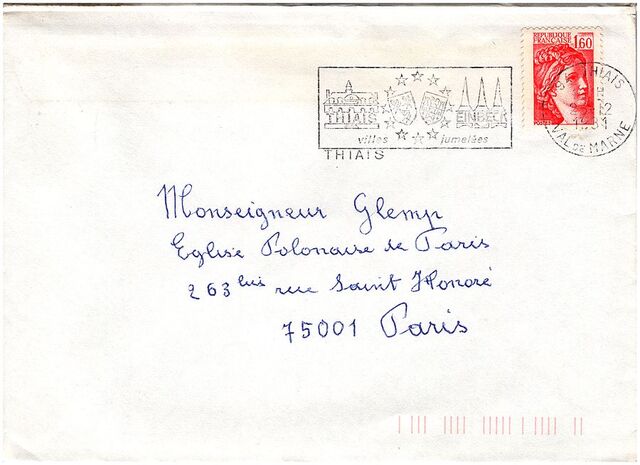 REPUBLIQUE
FRANÇAISE 1,60
THIAIS
12
1981
VAL DE MARNE
THIAIS EINBECK
villes jumelées
THIAIS
Monseigneur Glemp
Eglise Polonaise de Paris
263 bis rue Saint Honoré
75001 Paris